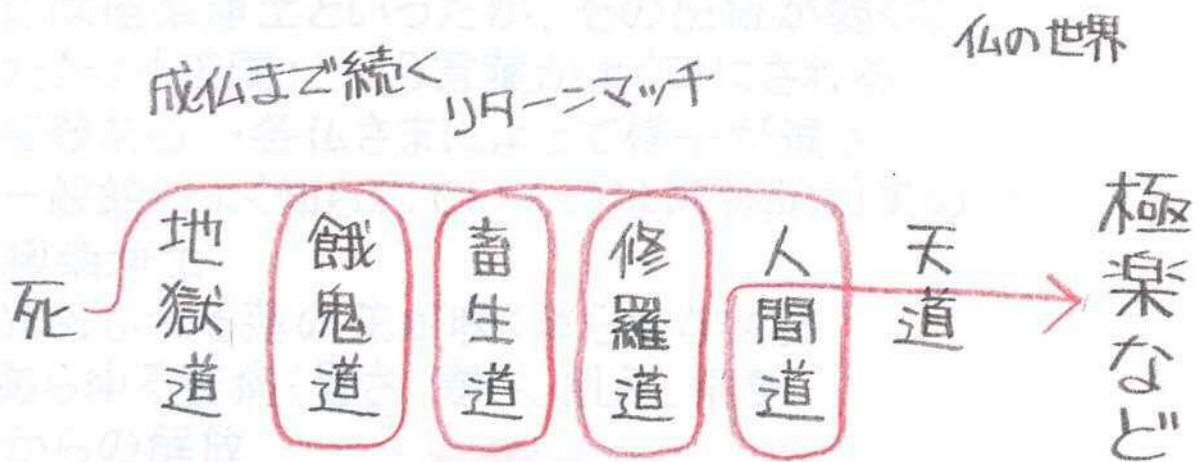 仏の世界
成仏まで続く
リターンマッチ
死
地獄道
餓鬼道
畜生道
修羅道
人間道
天道
極楽など